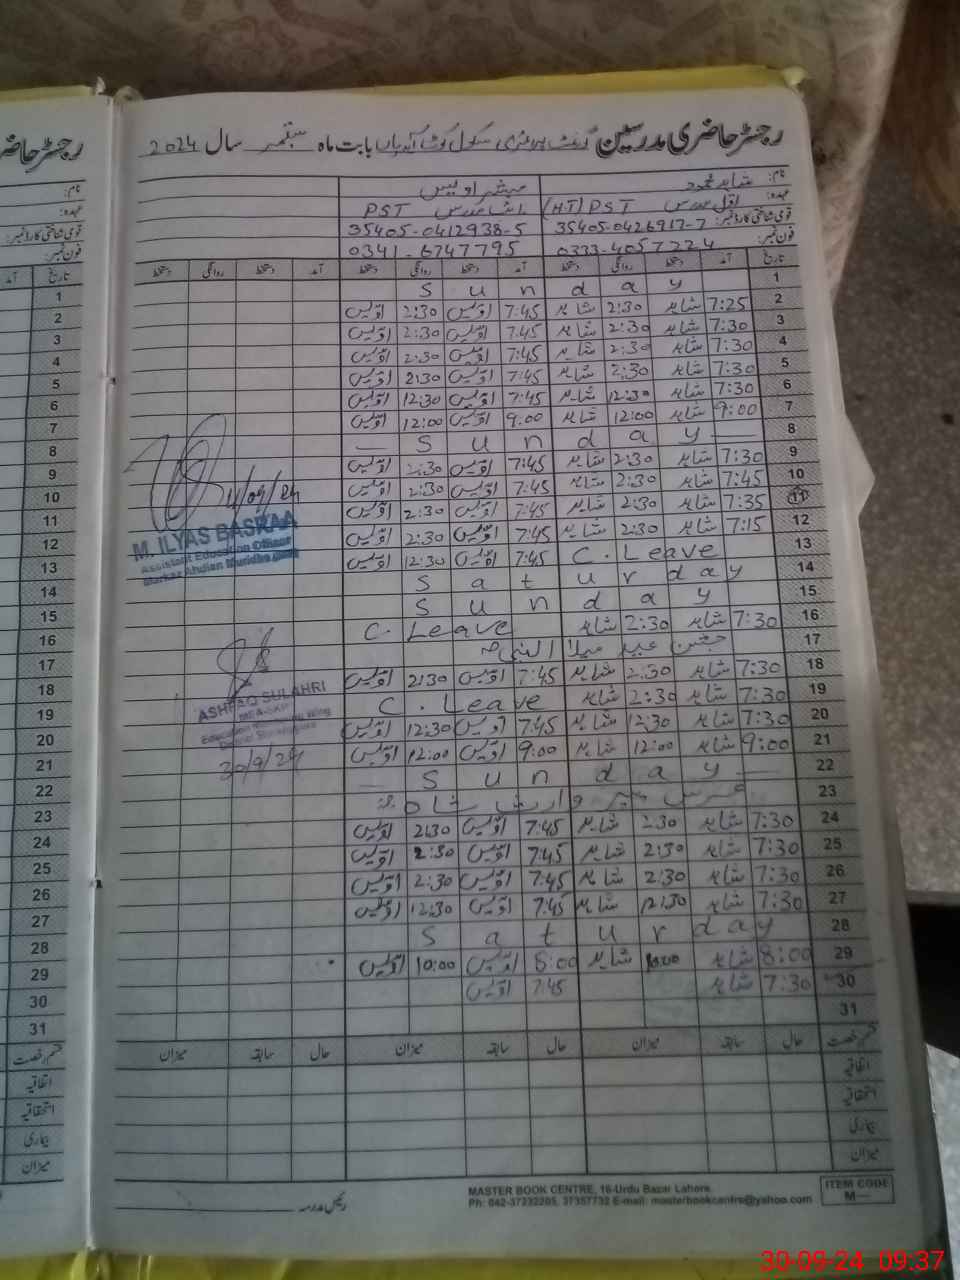 رجسٹر حاضری مدرسین گورنمنٹ پرائمری سکول کوٹ آدیاں بابت ماہ ستمبر سال 2024
نام: شاہد محمود مبشر اویس
عہدہ: اول مدرس (H.T) PST نائب مدرس PST
قومی شناختی کارڈ نمبر: 35405-0426917-7 35405-0412938-5
فون نمبر: 0333-4057224 0341-6747795
تاریخ آمد دستخط روانگی دستخط آمد دستخط روانگی دستخط آمد دستخط روانگی دستخط
1 Sunday
2 7:25 شاہد 2:30 شاہد 7:45 اویس 2:30 اویس
3 7:30 شاہد 2:30 شاہد 7:45 اویس 2:30 اویس
4 7:30 شاہد 2:30 شاہد 7:45 اویس 2:30 اویس
5 7:30 شاہد 2:30 شاہد 7:45 اویس 2:30 اویس
6 7:30 شاہد 12:30 شاہد 7:45 اویس 12:30 اویس
7 9:00 شاہد 12:00 شاہد 9:00 اویس 12:00 اویس
8 Sunday
9 7:30 شاہد 2:30 شاہد 7:45 اویس 2:30 اویس
10 7:45 شاہد 2:30 شاہد 7:45 اویس 2:30 اویس
11 7:35 شاہد 2:30 شاہد 7:45 اویس 2:30 اویس
12 7:15 شاہد 2:30 شاہد 7:45 اویس 2:30 اویس
13 C. Leave 7:45 اویس 12:30 اویس
14 Saturday
15 Sunday
16 7:30 شاہد 2:30 شاہد C. Leave
17 جشن عید میلاد النبی
18 7:30 شاہد 2:30 شاہد 7:45 اویس 2:30 اویس
19 7:30 شاہد 2:30 شاہد C. Leave
20 7:30 شاہد 12:30 شاہد 7:45 اویس 12:30 اویس
21 9:00 شاہد 12:00 شاہد 9:00 اویس 12:00 اویس
22 Sunday
23 عرس پیر وارث شاہ
24 7:30 شاہد 2:30 شاہد 7:45 اویس 2:30 اویس
25 7:30 شاہد 2:30 شاہد 7:45 اویس 2:30 اویس
26 7:30 شاہد 2:30 شاہد 7:45 اویس 2:30 اویس
27 7:30 شاہد 12:30 شاہد 7:45 اویس 12:30 اویس
28 Saturday
29 8:00 شاہد 10:00 شاہد 8:00 اویس 10:00 اویس
30 7:30 شاہد 7:45 اویس
31
قسم رخصت حال سابقہ میزان حال سابقہ میزان حال سابقہ میزان
اتفاقیہ
استحقاقیہ
بیماری
میزان
11/09/24
M. ILYAS BASRAA
Assistant Education Officer
Markaz Ahdian Muridke
ASHFAQ SULAHRI
MEA-SKP
Education Monitoring Wing
District Sheikhupura
30/9/24
رئیس مدرسہ
MASTER BOOK CENTRE, 16-Urdu Bazar Lahore.
Ph: 042-37232205, 37357732 E-mail: masterbookcentre@yahoo.com
ITEM CODE
M—
رجسٹر حاضری
نام:
عہدہ:
قومی شناختی کارڈ نمبر:
فون نمبر:
تاریخ آمد دستخط
1
2
3
4
5
6
7
8
9
10
11
12
13
14
15
16
17
18
19
20
21
22
23
24
25
26
27
28
29
30
31
قسم رخصت
اتفاقیہ
استحقاقیہ
بیماری
میزان
30-09-24 09:37